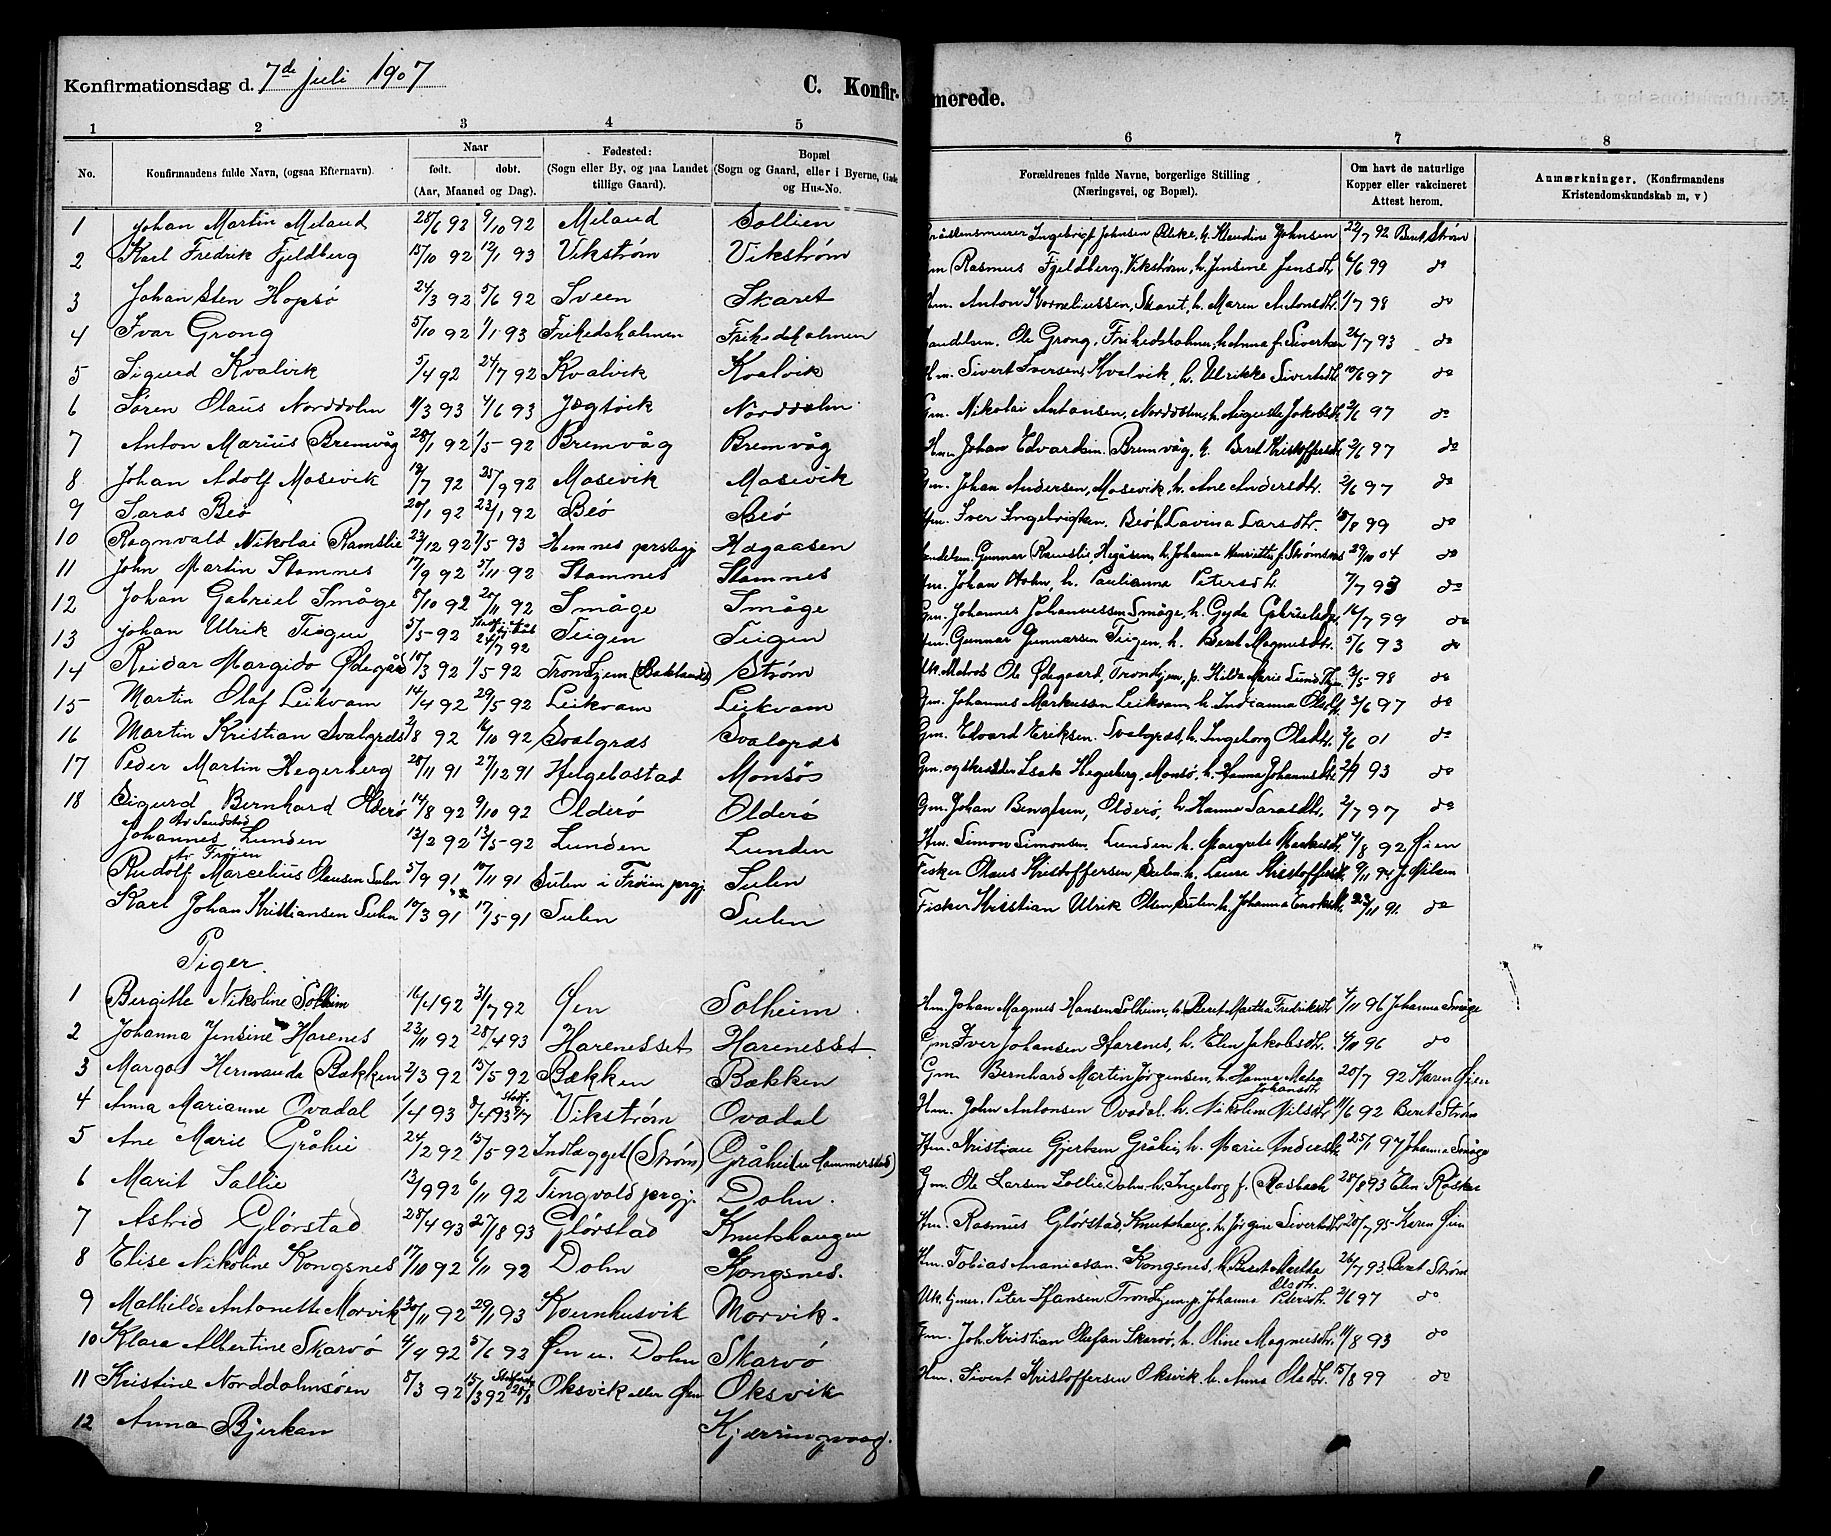 Konfirmationsdag d. 7de juli 1907 C. Konfir-merede.
1 2 3 4 5 6 7 8
No. Konfirmandens fulde Navn, (ogsaa Efternavn). Naar født. døbt. (Aar, Maaned og Dag). Fødested: (Sogn eller By, og paa Landet tillige Gaard). Bopæl (Sogn og Gaard, eller i Byerne, Gade og Hus-No. Forældrenes fulde Navne, borgerlige Stilling (Næringsvei, og Bopæl). Om havt de naturlige Kopper eller vakcineret Attest herom. Anmærkninger. (Konfirmandens Kristendomskundskab m, v)
1 Johan Martin Meland 28/6 92 9/10 92 Meland Sollien Ingebrigt Johnsen h. Klaudine Johnsen 22/7 92 Beret Strøm
2 Karl Fredrik Fjeldberg 15/10 92 12/1 93 Vikstrøm Vikstrøm Gm Rasmus Fjeldberg, Vikstrøm, h. Jensine Jensdtr. 6/6 99 do
3 Johan Sten Hopsø 24/3 92 5/6 92 Sveen Skaret Hm. Anton Korneliussen, Skaret, h. Maren Antonsdtr. 1/7 98 do
4 Ivar Grong 5/10 92 1/1 93 Frihedsholmen Frihedsholmen Handelsm. Ole Grong, Frihedsholmen, h. Anna f. Sivertsen 26/7 93 do
5 Sigurd Kvalvik 5/4 92 24/7 92 Kvalvik Kvalvik Hm. Sivert Iversen, Kvalvik, h. Ulrikke Sivertsdtr. 10/6 97 do
6 Søren Olaus Norddolm 11/3 93 4/6 93 Jægtvik Norddolm Gm. Nikolai Antonsen, Norddolm, h. Auguste Jakobsdtr. 2/6 97 do
7 Anton Marius Bremvåg 28/1 92 1/5 92 Bremvåg Bremvåg Hm Johan Edvardsen. Bremvåg, h. Beret Kristoffersdtr. 2/6 97 do
8 Johan Adolf Mosevik 19/7 92 25/9 92 Mosevik Mosevik Gm. Johan Andersen, Mosevik, h. Ane Andersdtr. 2/6 97 do
9 Saras Beø 20/1 92 23/1 92 Beø Beø Hm. Iver Ingebrigtsen. Beø h. Lavina Larsdtr. 15/8 99 do
10 Regnvald Nikolai Ramslie 23/12 92 7/5 93 Hemnes prstegj Hægaasen Handelsm Gunnar Ramslie, Hegåsen, h. Johanna Henriette f. Strømsnes 29/10 04 do
11 John Martin Stamnes 17/9 92 27/11 92 Stamnes Stamnes Gm. Johan h. Paulianna Petersdtr. 7/7 93 do
12 Johan Gabriel Småge 8/10 92 20/11 92 Småge Småge Gm. Johannes Johannessen Småge, h. Gyda Gabrielsdtr. 16/7 99 do
13 Johan Ulrik Teigen 5/5 92 24/7 92 Teigen Teigen Hm. Gunnar Gunnarsen Teigen, h. Beret Magnusdtr. 5/6 93 do
14 Reidar Margido Ødegård 10/3 92 1/5 92 Trondhjem (Baklandet) Strøm Uk. Matros Ole Ødegaard, Trondhjem, p. Hilda Marie Lund 3/5 98 do
15 Martin Olaf Leikvam 14/4 92 29/5 92 Leikvam Leikvam Gm. Johannes Markussen Leikvam, h. Indianna Olsdtr. 3/6 97 do
16 Martin Kristian Svalgræs 2/8 92 16/10 92 Svalgræs Svalgræs Gm. Edvard Eriksen. Svalgræs, h. Ingeborg Olsdtr. 9/6 01 do
17 Peder Martin Hegerberg 28/11 91 27/12 91 Helgebostad Monsø Gm. og skrædder Isak Hegerberg, Monsø, h. Hanna Johannesdtr. 93 do
18 Sigurd Bernhard Olderø 14/8 92 9/10 92 Olderø Olderø Gm. Johan Bengtsen, Olderø, h. Hanna Sarasdtr. 2/7 97 do
Av Sandstad
Johannes Lunden 13/2 92 13/5 92 Lunden Lunden Hm. Simon Simonsen. Lunden h. Margrete 4/8 92 Øien
Av Frøien
Rudolf Marcelius Olausen Sulen 5/9 91 10/11 91 Sulen i Frøien prgj Sulen Fisker Olaus Kristoffersen, Sulen, h. Kristoffersdtr.
Karl Johan Kristiansen Sulen 10/3 91 17/5 91 Sulen Sulen Fisker Kristian Ulrik Olsen, Sulen, h. Johanna Enoksdtr. 23/11 91. do
Piger.
1 Bergitte Nikoline Solheim 16/4 92 31/7 92 Øen Solheim. Hm. Johan Magnus Hansen Solheim, h. Beret Martha Fredriksdtr. 4/11 96 Johanna Småge
2 Johanna Jensine Harenes 23/11 92 28/4 93 Harenesset Harenesset. Gm Iver Johansen Harenes, h. Elen Jakobsdtr. 4/11 96 do
3 Margot Hermanda Bækken 2/3 92 15/5 92 Bækken Bækken Gm Bernhard Martin Jørgensen, h. Hanna Mahea Johansdtr 20/7 92 Karen Øien
4 Anna Marianne Ovadal 1/4 93 9/4 93 Vikstrøm Ovadal Hm. John Antonsen Ovadal. h. Nikoline Nilsdtr. 11/6 92 Beret Strøm
5 Ane Marie Gråhei 24/2 92 15/5 92 Indlægget (Strøm) Gråhei (u Hammerstad) Hm. Kristian Gjertsen Gråhei, h. Marie Andersdtr. 25/1 97 Johanna Småge
6 Marit Sollie 13/9 92 6/11 92 Tingvold prgj. Dolm. Gm. Ole Larsen Sollie Dolm. h. Ingeborg f. Rosbach 28/8 93 Elen Røskar
7 Astrid Glørstad 28/4 93 27/8 93 Glørstad Knutshaugen Hm. Rasmus Glørstad, Knutshaug, h. Jørgine Sivertsdtr. 20/7 95 Karen Øien
8 Elise Nikoline Kongsnes 17/10 92 6/11 92 Dolm Kongsnes. Hm. Tobias Ananiassen. Kongsnes, h. Beret Martha Olsdtr. 26/7 93. Beret Strøm
9 Mathilde Antonette Morvik 30/11 92 29/1 93 Kvernhusvik Morvik. Uk. tjener. Peter Hansen Trondhjem p. Johanna Petersdtr. 2/6 97 do
10 Klara Albertine Skarvø 4/4 92 5/6 92 Øen u. Dolm Skarvø Gm. Joh. Kristian Olufsen Skarvø, h. Oline Magnusdtr. 11/8 93 do
11 Kristine Norddolmsøen 8/3 92 15/3 92 Oksvik eller Øen Oksvik Hm. Sivert Kristoffersen Oksvik. h. Anna Olsdtr. 15/8 99 do
12 Anna Bjerkan Kjærringvaag.